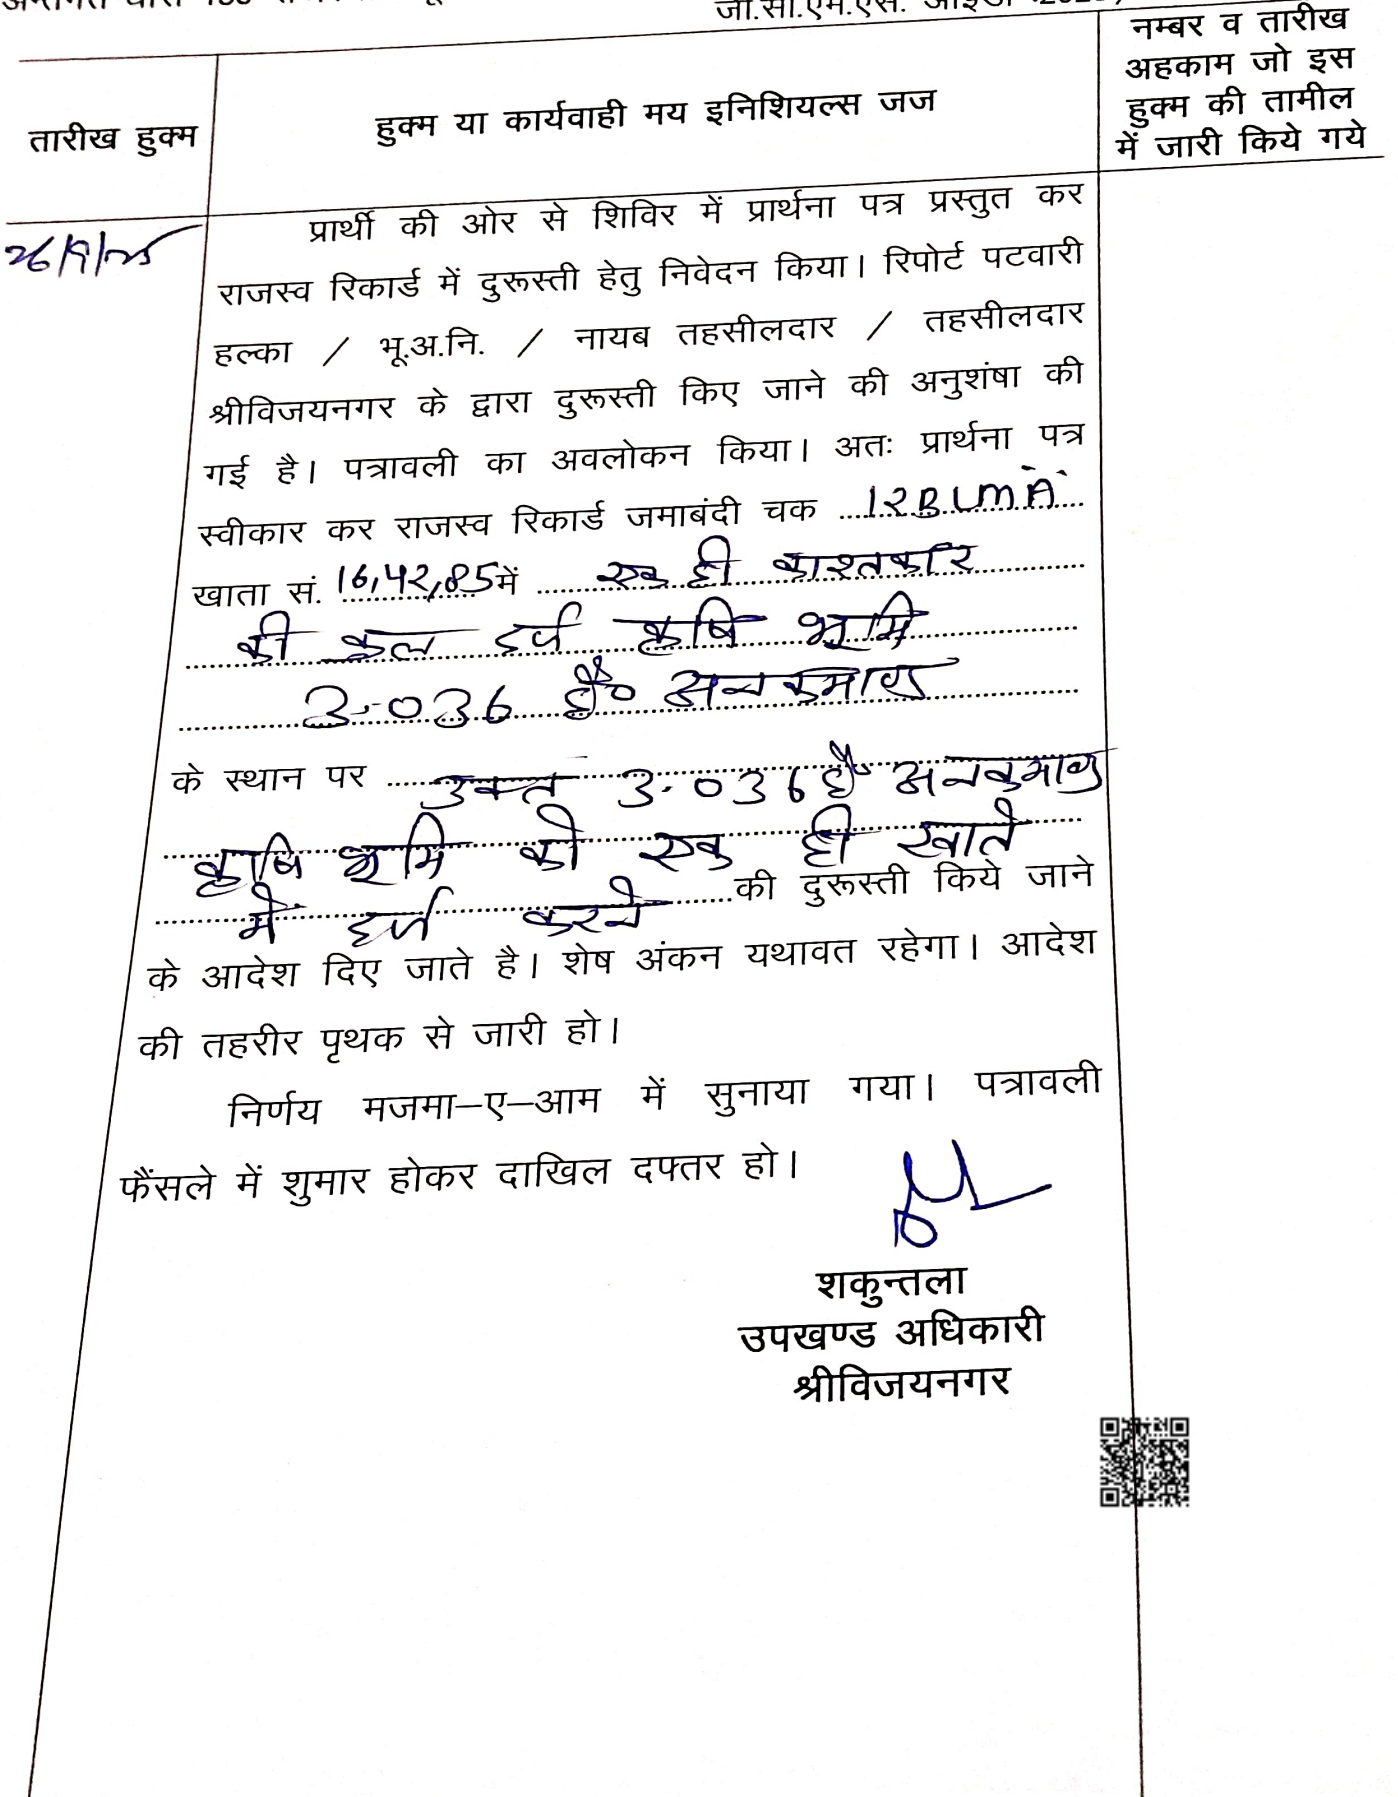 जी.सी.एम.एस.
तारीख हुक्म
हुक्म या कार्यवाही मय इनिशियल्स जज
नम्बर व तारीख
अहकाम जो इस
हुक्म की तामील
में जारी किये गये
26/9/25
प्रार्थी की ओर से शिविर में प्रार्थना पत्र प्रस्तुत कर
राजस्व रिकार्ड में दुरूस्ती हेतु निवेदन किया। रिपोर्ट पटवारी
हल्का / भू.अ.नि. / नायब तहसीलदार / तहसीलदार
श्रीविजयनगर के द्वारा दुरूस्ती किए जाने की अनुशंषा की
गई है। पत्रावली का अवलोकन किया। अतः प्रार्थना पत्र
स्वीकार कर राजस्व रिकार्ड जमाबंदी चक 12BLM 'A'
खाता सं. 16,42,85 में एक ही काश्तकार
की कुल दर्ज कृषि भूमि
3.036 है0 अनकमाण्ड
के स्थान पर उक्त 3.036 है0 अनकमाण्ड
कृषि भूमि को एक ही खाते
में दर्ज करने की दुरूस्ती किये जाने
के आदेश दिए जाते है। शेष अंकन यथावत रहेगा। आदेश
की तहरीर पृथक से जारी हो।
निर्णय मजमा–ए–आम में सुनाया गया। पत्रावली
फैंसले में शुमार होकर दाखिल दफ्तर हो।
शकुन्तला
उपखण्ड अधिकारी
श्रीविजयनगर